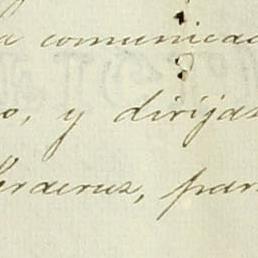 a comunicac
o, y dirijas
Veracruz, par